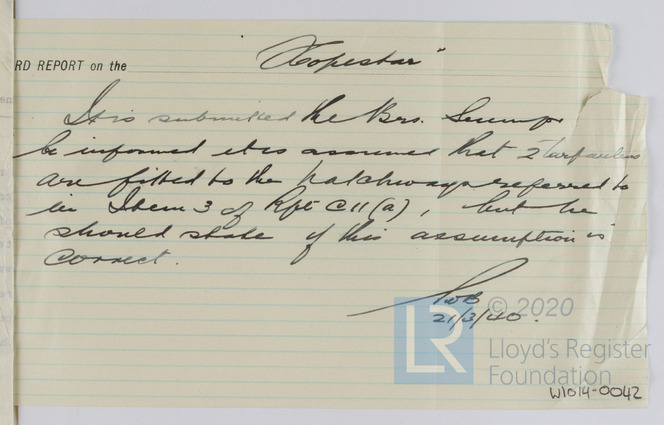 RD REPORT on the "Hopestar"
It is submitted the Brs. Surveyor
be informed it is assumed that 2 tarpaulins
are fitted to the hatchways referred to
in Item 3 of Rpt C11(a), but he
should state if this assumption is
correct.
21/3/40.
LR
© 2020
Lloyd's Register
Foundation
W1014-0042